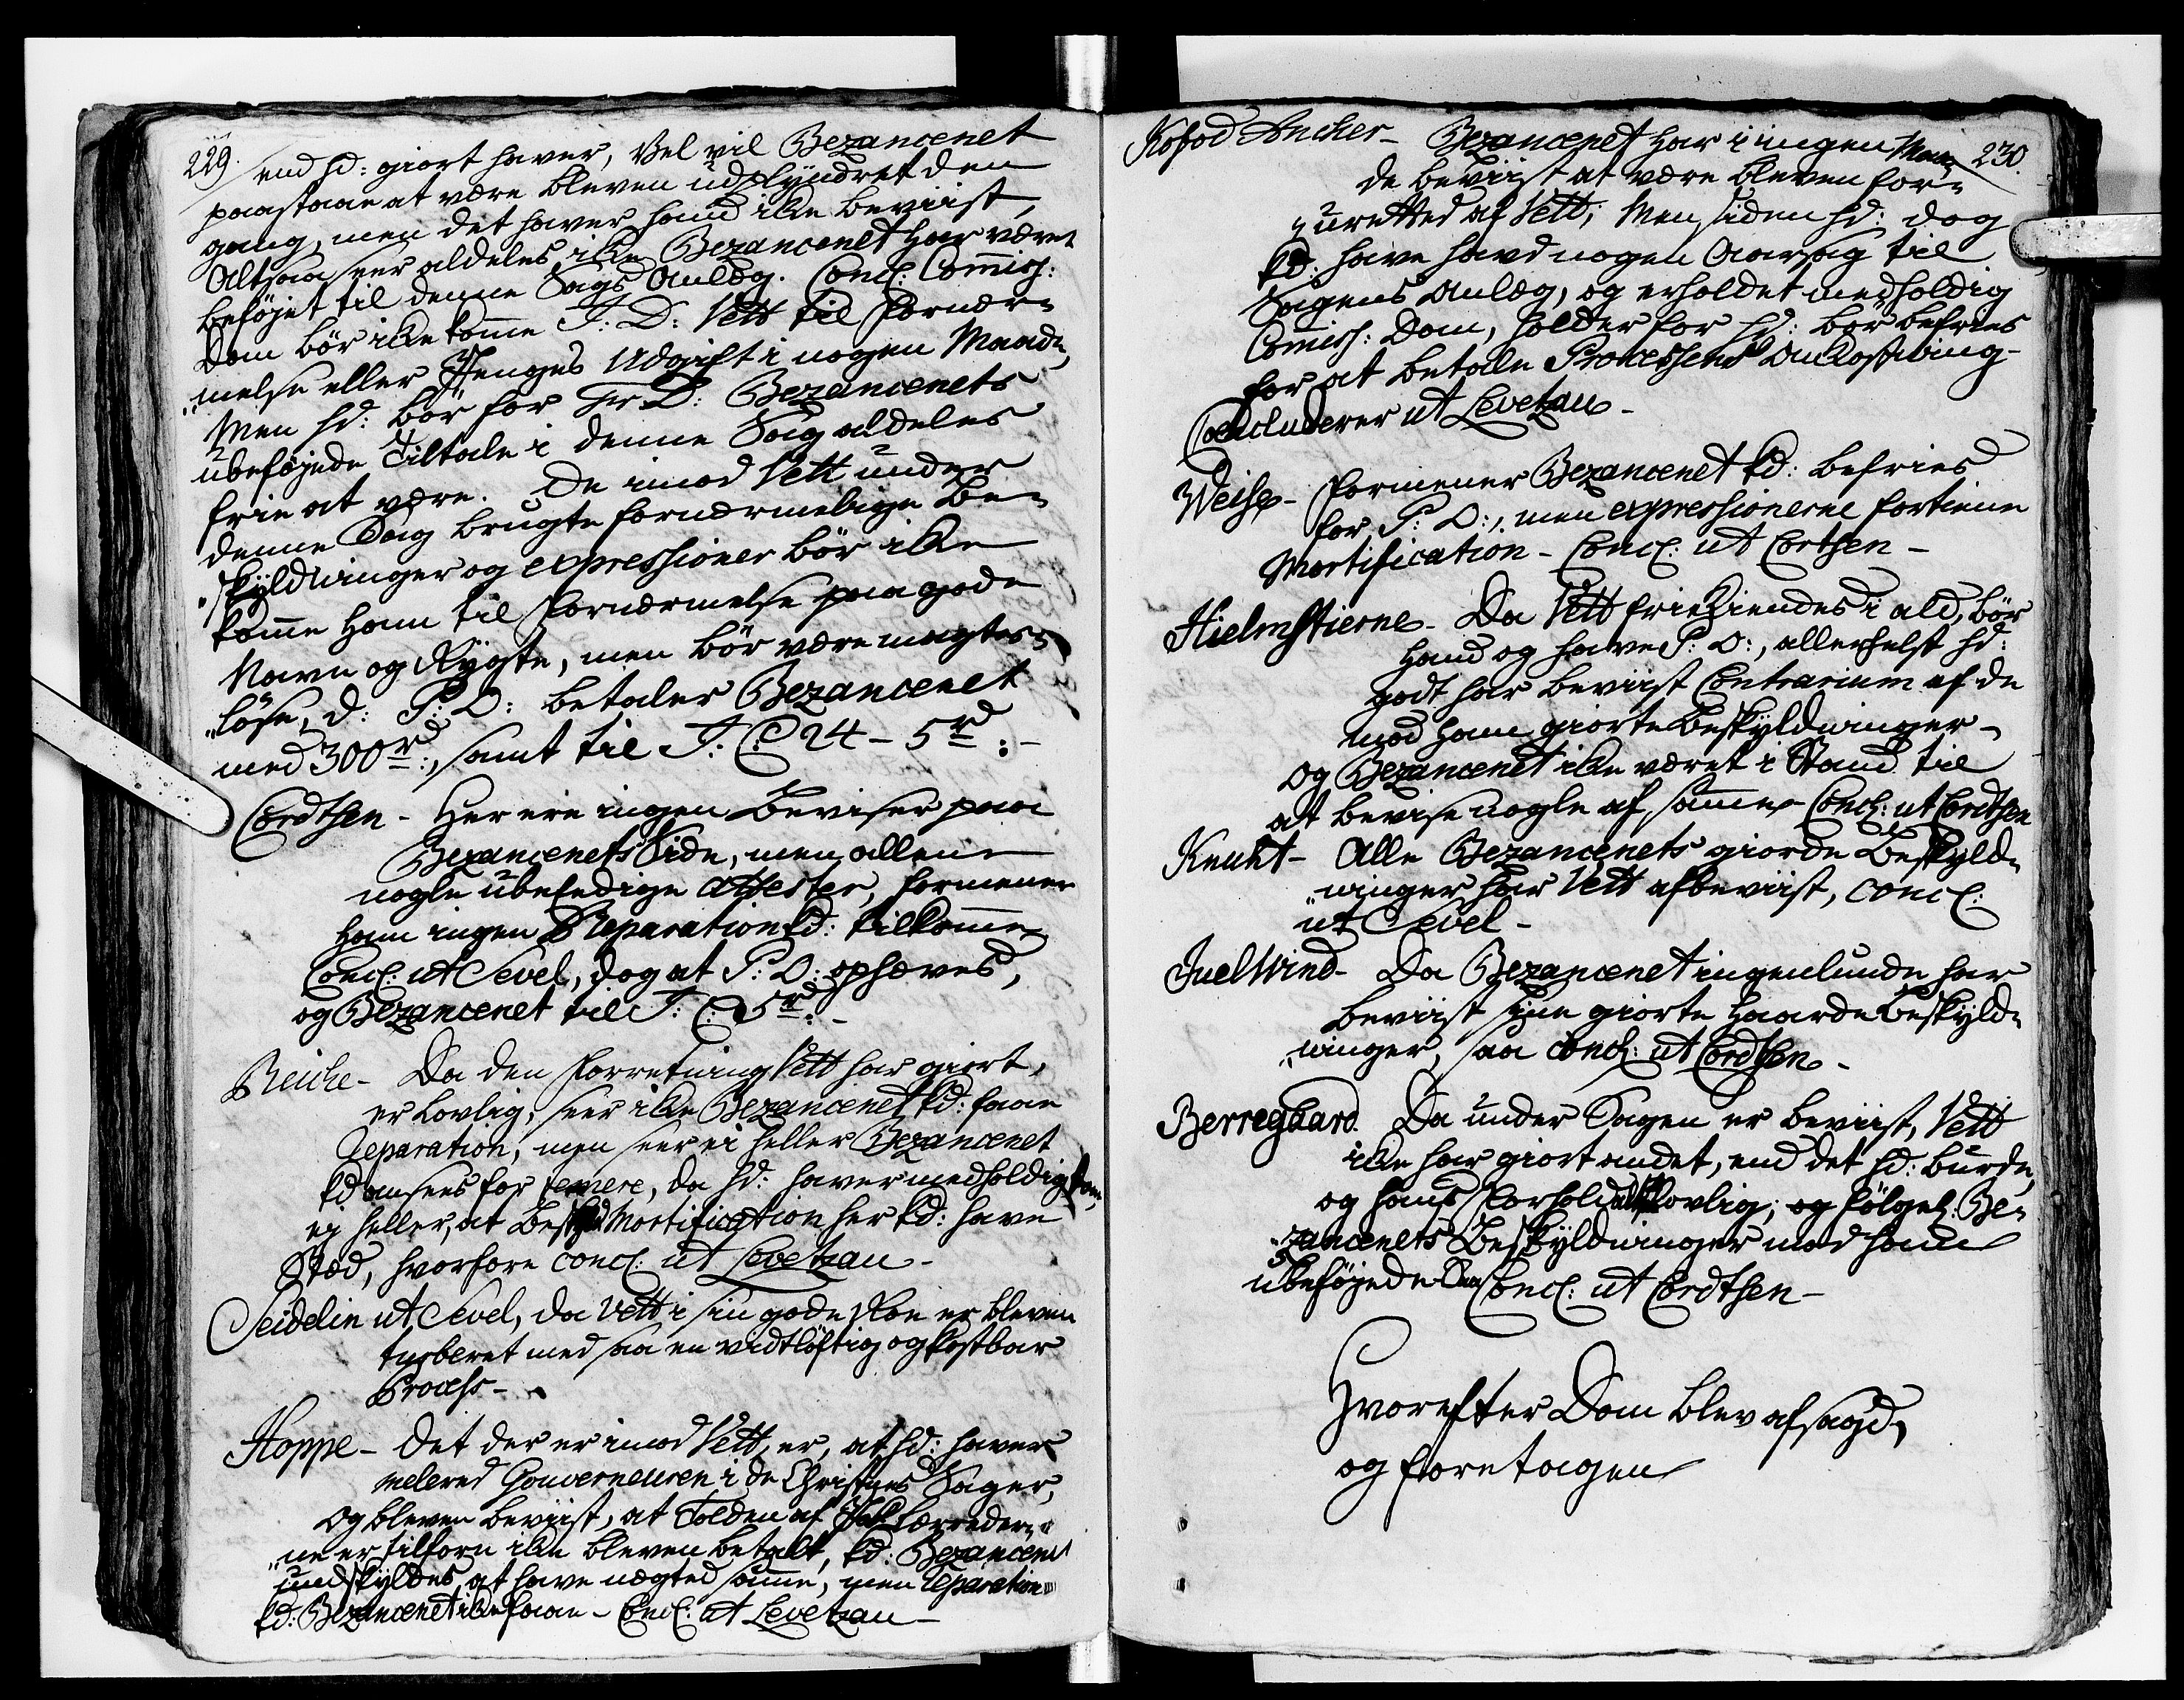 229.
end hd: giort haver, Vel vil Bezancenet
paastaae at være bleven udplyndret den
gang, men det haver hand icke beviist,
Altsaa seer aldeles icke Bezancenet har været
beføjet til denne Sags Anlæg. Concl: Com̄iss:
Dom bör icke kom̄e T: D: Vett til Fornær-
melse eller Penges Udgift i nogen Maade,
Men hd: bör for Fr D: Bezancenets
ubeføjede Tiltale i denne Sag aldeles
frie at være. De imod Vett under
denne Sag brugte fornærmelige Be-
skyldninger og expressioner bör icke
kom̄e ham til Fornærmelse paa gode
Navn og Rÿgte, men bör være magtes-
löse, d: P: O: betaler Bezancenet
med 300 rd:, samt til J: C: 24 - 5 rd: -
Cordtsen - Her ere ingen Beviser paa
Bezancenets Side, men allene
nogle ubeEedige Attester, formener
ham ingen Reparation kd: tilkom̄e
Concl: ut Sevel, dog at P: O: ophæves,
og Bezancenet til J: C: 5 rd: -
Reiche - Da den Forretning Vett har giort,
er Lovlig, seer icke Bezancenet kd: faae
reparation, men seer ei heller Bezancenet
kd ansees for temere, da hd: haver medholdig Dom,
ej heller, at Mortification her kd: have
Stæd, hvorfore concl: ut Levetzau -
Seidelin ut Sevel, da Vett i sin gode Roe er bleven
turberet med saa en vidtløftig og kostbar
Process -
Hoppe - Det der er imod Vett, er, at hd: haver
meleret Gouverneuren i de Christnes Sager,
og bleven beviist, at Tolden af Lærreder-
ne er tilforn icke bleven betalt, kd: Bezancenet
undskyldes at have nægted sam̄e, men reparation
kd: Bezancenet icke faae - Concl: ut Levetzau -
230.
Kofod Ancher - Bezancenet har i ingen Maa-
de beviist at være bleven for-
urætted af Vett; Men siden hd: dog
kd: have havd nogen Aarsag til
Sagens Anlæg, og erholdet medholdig
Com̄iss: Dom, holder for hd: bör befries
for at betale Processens Omkostning -
Concluderer ut Levetzau -
Weise - Formener Bezancenet kd: befries
for P: O:, men expressionerne fortiene
Mortification - Concl: ut Cortsen -
Hielmstierne - Da Vett friekiendes i ald, bör
hand og have P: O:, allerhelst hd:
godt har beviist Contrarium af de
mod ham giorte Beskyldninger -
og Bezancenet icke været i Stand til
at bevise nogle af sam̄e - Concl: ut Cordtsen
Knuht - Alle Bezancenets giorde Beskyld-
ninger har Vett afbeviist, concl:
ut Sevel -
Juel Wind - Da Bezancenet ingenlunde har
beviist sine giorte haarde Beskyld-
ninger, saa concl: ut Cordtsen -
Berregaard. Da under Sagen er beviist, Vett
icke har giort andet, end det hd: burde,
og hans Forhold lovlig, og følgel: Be-
zancenets Beskyldninger mod ham
ubeføjede Concl: ut Cordtsen -
Hvorefter Dom blev afsagd,
og foretagen